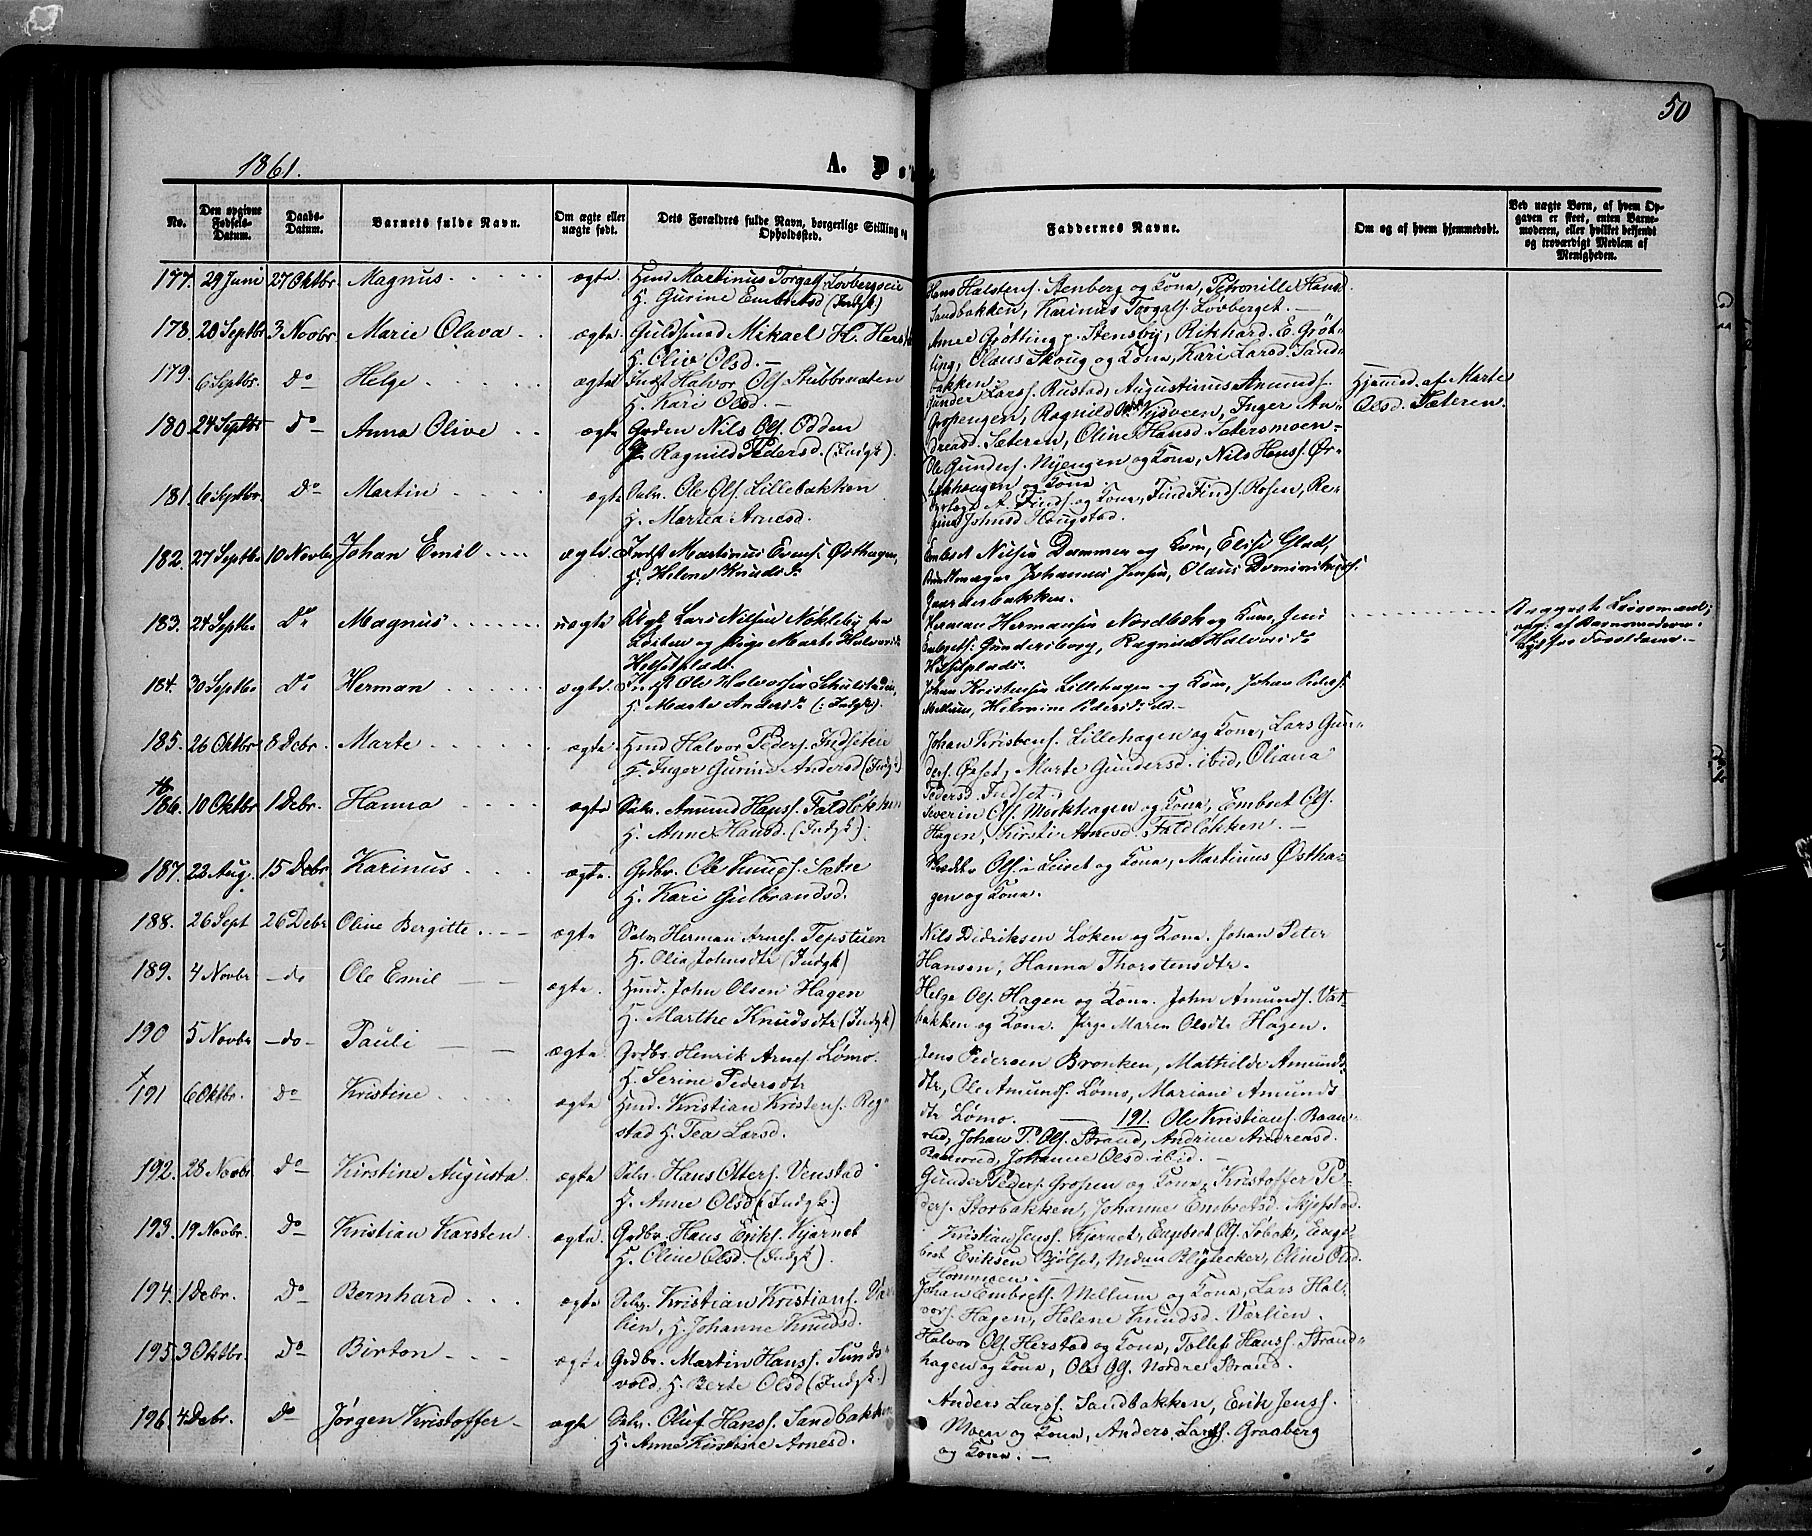 50
1861.
A. D
No.
Den opgivne Fødsels-Datum.
Daabs-Datum.
Barnets fulde Navn.
Om ægte eller uægte født.
Dets Forældres fulde Navn, borgerlige Stilling og Opholdssted.
Faddernes Navne.
Om og af hvem hjemmedøbt.
Ved uægte Børn, af hvem Opgaven er skeet, enten Barnemoderen, eller hvilket bekjendt og troværdigt Medlem af Menigheden.
177. 29 Juni 27 Oktbr. Magnus ægte. Hmd Martinus Torgalss. Løvbergseie
H. Gurine Embretsd (Indgk)
Hans Halsters. Stenberg og Kone, Petronille Hansd.
Sandbakken, Karinus Torgalss. Løvberget. —
178. 20 Septbr 3 Novbr. Marie Olava ægte. Guldsmed Mikael H.
H. Oliv Olsd. —
Anne Grøtting p. Stensby, Rikhard E. Grøt-
ting, Olaus Skoug og Kone, Kari Larsd. Sand-
bakken.
179. 6 Septbr. Do Helge ægte Indst Halvor Ols. Stubbrneten
H. Kari Olsd. —
Gunder Larss. Rustad, Augustinus Amunds.
Grosengen, Ragnild Vysveen, Inger An-
dreasd. Sæteren, Oline Hansd Sætersmoen —
Hjemmed. af Marte
Olsd. Sæteren.
180 24 Septbr Do Anna Olive ægte Nils Ols. Odden
Ragnild Pedersd. (Indgk).
Ole Gunders. Nyengen og Kone, Nils Hanss. Ør-
bekhaugen og Kone
181. 6 Septbr. Do Martin ægte Selv. Ole Ols. Lillebakken
H. Martea Arnesd.
A. Finds. og Kone, Find Finds. Rosen, Re-
gine Johnsd Haugstad.
182. 27 Septbr 10 Novbr Johan Emil ægte Indst Martinus Evens. Østhagen,
H. Helene Knudsd.
Embret Nilsen Dammen og Kone, Elise Glad,
Johannes Jensen, Olaus
Gaarderbakken.
183. 24 Septbr Do Magnus uægte Ungk. Lars Nilsen Nøkleby fra
Løiten og Pige Marte Halvorsd.
Helsetplads.
Herman Hermansen Nordbæk og Kone, Jens
Embrets. Gundersborg, Ragnild Halvorsd.
Helsetplads.
Begges Leiermaal;
opg. af Barnemoderen
184. 30 Septbr Do Herman ægte. Indst Ole Halvorsen Skulstaden,
H. Marte Andersd. (Indgk).
Johan Kristensen Lillehagen og Kone, Johan Peders.
Mellum, Helmine Pedersd. —
185. 26 Oktbr. 8 Debr. Marte ægte Hmd Halvor Peders. Indseteie
H. Inger Gurine Andersd (Indgk)
Johan Kristens. Lillehagen og Kone, Lars Gun-
ders. Øiset, Marte Gundersd. ibid, Oliana
Pedersd. Indset.
186. 10 Oktbr 1 Debr. Hanna ægte Selv. Amund Hanss. Faldløkken
H. Anne Hansd. (Indgk).
Severin Ols. Mørkhagen og Kone, Embret Ols.
Hagen, Kirsti Arnesd. Faldløkken. —
187. 22 Aug. 15 Debr Karinus ægte. Grdbr. Ole Knuds. Sætre
H. Kari Gulbrandsd.
Ols. Leiret og Kone, Martinus Østha-
gen og Kone.
188. 26 Sept 26 Debr Oline Bergitte ægte Selv Herman Arnes. Tepstuen
H. Olia Johnsdtr (Indgk)
Nils Didriksen Løken og Kone. Johan Peter
Hansen, Hanna Thorstensdtr.
189. 4 Novbr — do Ole Emil ægte. Hmd. John Olsen Hagen
H. Marthe Knudsdtr (Indgk)
Helge Ols. Hagen og Kone. John Amunds. Vat-
bakken og Kone. Pige Maren Olsdtr Hagen.
190 5 Novbr — do — Pauli ægte Grdbr. Henrik Arnes. Lømo.
H. Serine Pedersdtr
Jens Pedersen Bronken, Mathilde Amunds-
dtr, Ole Amunds. Lømo, Mariane Amunds
dtr Lømo.
191 6 Oktbr. Do Kristine ægte Hmd. Kristian Kristens. Reg-
stad H. Tea Larsd.
191. Ole Kristians. Baan-
rud, Johan P. Ols. Strand, Andrine Andreasd.
Baanrud, Johanne Olsd. ibid. —
192. 28 Novbr Do Kirstine Augusta ægte Selv. Hans Otters. Venstad
H. Anne Olsd (Indgk.)
Gunder Peders. Grosen og Kone, Kristoffer Pe-
ders. Storbakken, Johanne Embretsd. Skjefstad.
193. 19 Novbr. Do Kristian Karsten ægte. Grdbr. Hans Eriks. Kjernet
H. Oline Olsd. (Indgk).
Kristian Jenss. Kjernet, Engebret Ols. Løbak, Enge-
bret Eriksen Bjølset, Blystecker, Oline Olsd.
Hommoen.
194. 1 Debr. Do Bernhard ægte Selv. Kristian Kristians. Vær-
lien, H. Johanne Knudsd.
Johan Embrets. Mellum og Kone, Lars Hal-
vors. Hagen, Helene Knudsd. Værlien.
195. 3 Oktbr. Do Birton ægte Grdbr. Martin Hanss. Sunds-
vold, H. Berte Olsd (Indgk.)
Halvor Ols. Herstad og Kone, Tollef Hanss. Strand-
hagen og Kone, Ole Ols. Nordre Strand.
196. 4 Debr. Do Jørgen Kristoffer ægte Selv. Oluf Hanss. Sandbakken
H. Anne Kirstine Arnesd.
Anders Larss. Sandbakken, Erik Jenss.
Moen og Kone, Anders Larss. Graaberg
og Kone. —